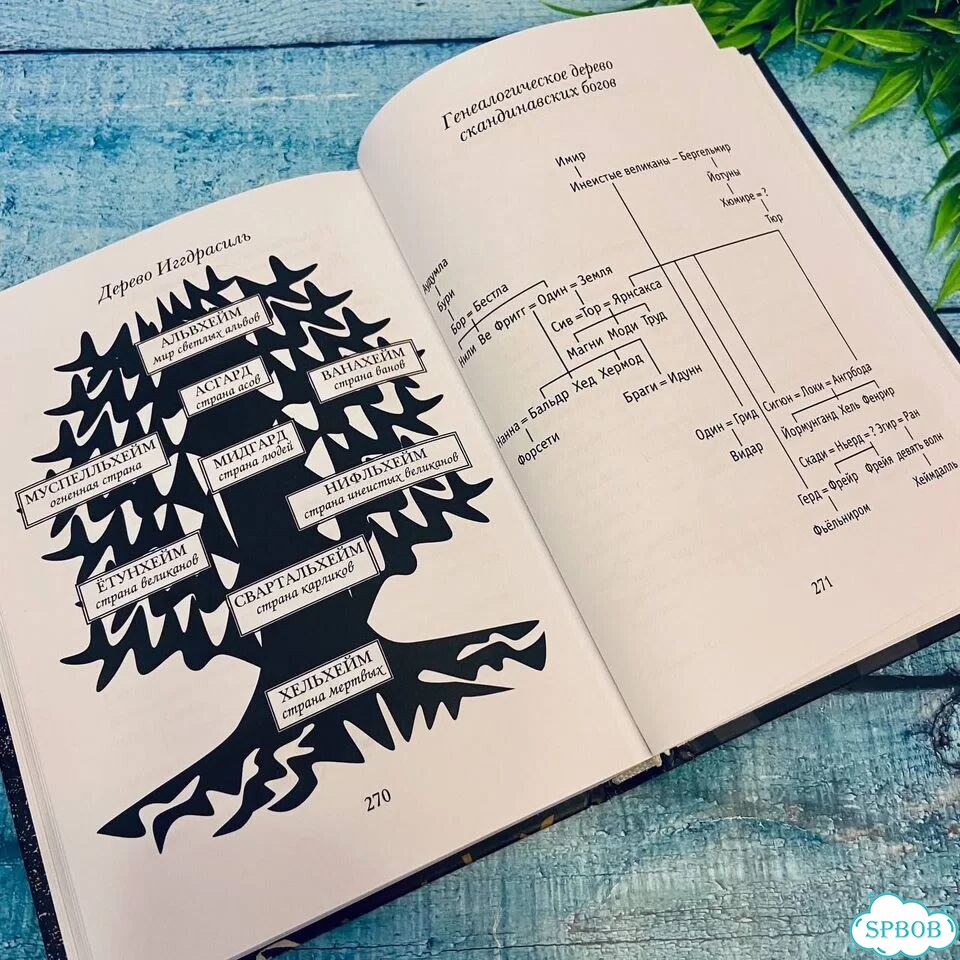 Дерево Иггдрасиль
АЛЬВХЕЙМ
мир светлых альвов
АСГАРД
страна асов
ВАНАХЕЙМ
страна ванов
МИДГАРД
страна людей
МУСПЕЛЛЬХЕЙМ
огненная страна
НИФЛЬХЕЙМ
страна инеистых великанов
ЁТУНХЕЙМ
страна великанов
СВАРТАЛЬХЕЙМ
страна карликов
ХЕЛЬХЕЙМ
страна мертвых
270
Генеалогическое дерево
скандинавских богов
Имир
Инеистые великаны – Бергельмир
Йотуны
Хюмире = ?
Тюр
Аудумла
Бури
Бор = Бестла
Вили Ве Фригг = Один = Земля
Сив = Тор = Ярнсакса
Магни Моди Труд
Нанна = Бальдр Хед Хермод
Форсети
Браги = Идунн
Один = Грид
Видар
Сигюн = Локи = Ангрбода
Йормунганд Хель Фенрир
Скади = Ньерд = ? Эгир = Ран
Герд = Фрейр Фрейя девять волн
Фьёльниром
Хеймдалль
271
SPBOB